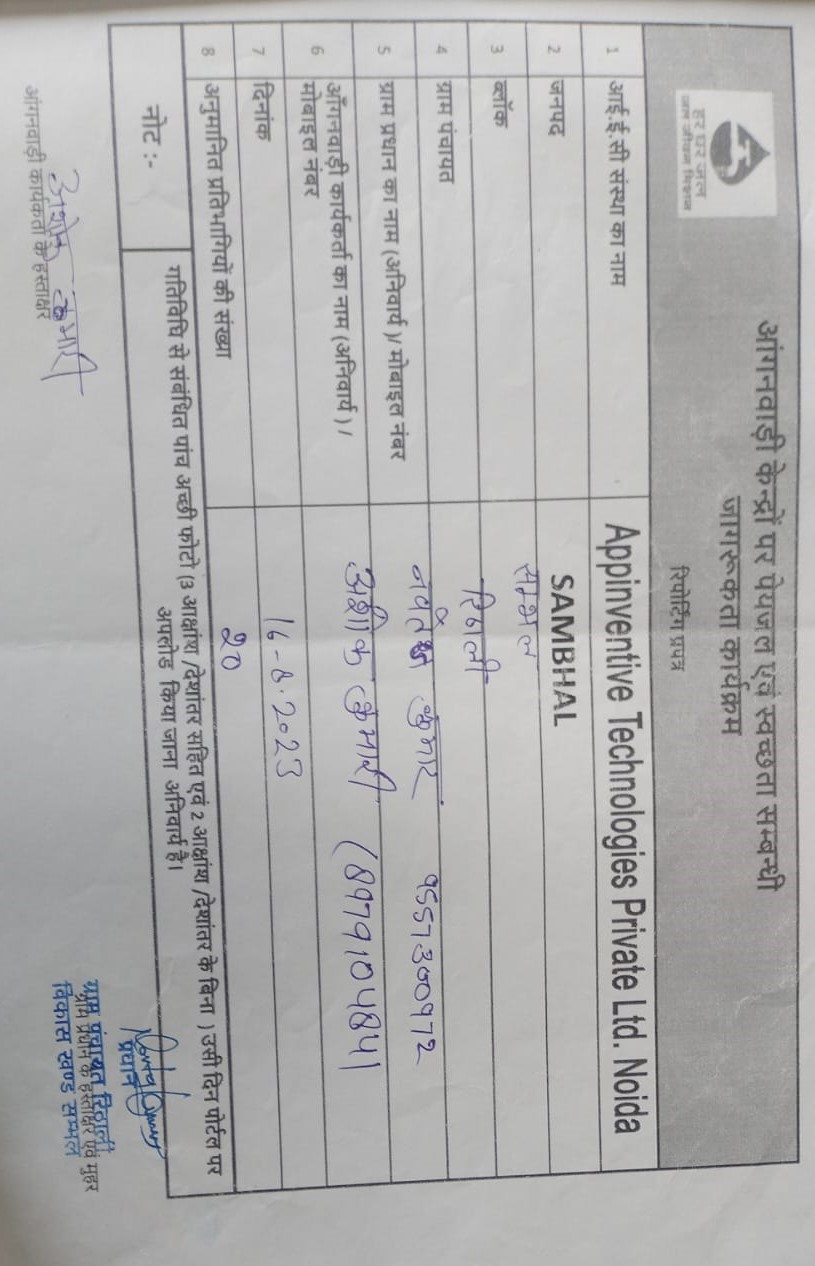 हर घर जल
जल जीवन मिशन
आंगनवाड़ी केन्द्रों पर पेयजल एवं स्वच्छता सम्बन्धी
जागरूकता कार्यक्रम
रिपोर्टिंग प्रपत्र
1 आई.ई.सी संस्था का नाम Appinventive Technologies Private Ltd. Noida
2 जनपद SAMBHAL
3 ब्लॉक सम्भल
4 ग्राम पंचायत रिठाली
5 ग्राम प्रधान का नाम (अनिवार्य )/ मोबाइल नंबर कुमार
6 आँगनवाड़ी कार्यकर्ता का नाम (अनिवार्य ) / कुमारी (8979104841
मोबाइल नंबर
7 दिनांक 16-8.2023
8 अनुमानित प्रतिभागियों की संख्या 20
नोट :- गतिविधि से संबंधित पांच अच्छी फोटो (3 आक्षांश /देशांतर सहित एवं 2 आक्षांश /देशांतर के बिना ) उसी दिन पोर्टल पर
अपलोड किया जाना अनिवार्य है।
प्रधान
कुमारी
आंगनवाड़ी कार्यकर्ता के हस्ताक्षर
ग्राम पंचायत रिठाली
ग्राम प्रधान के हस्ताक्षर एवं मुहर
विकास खण्ड सम्भल